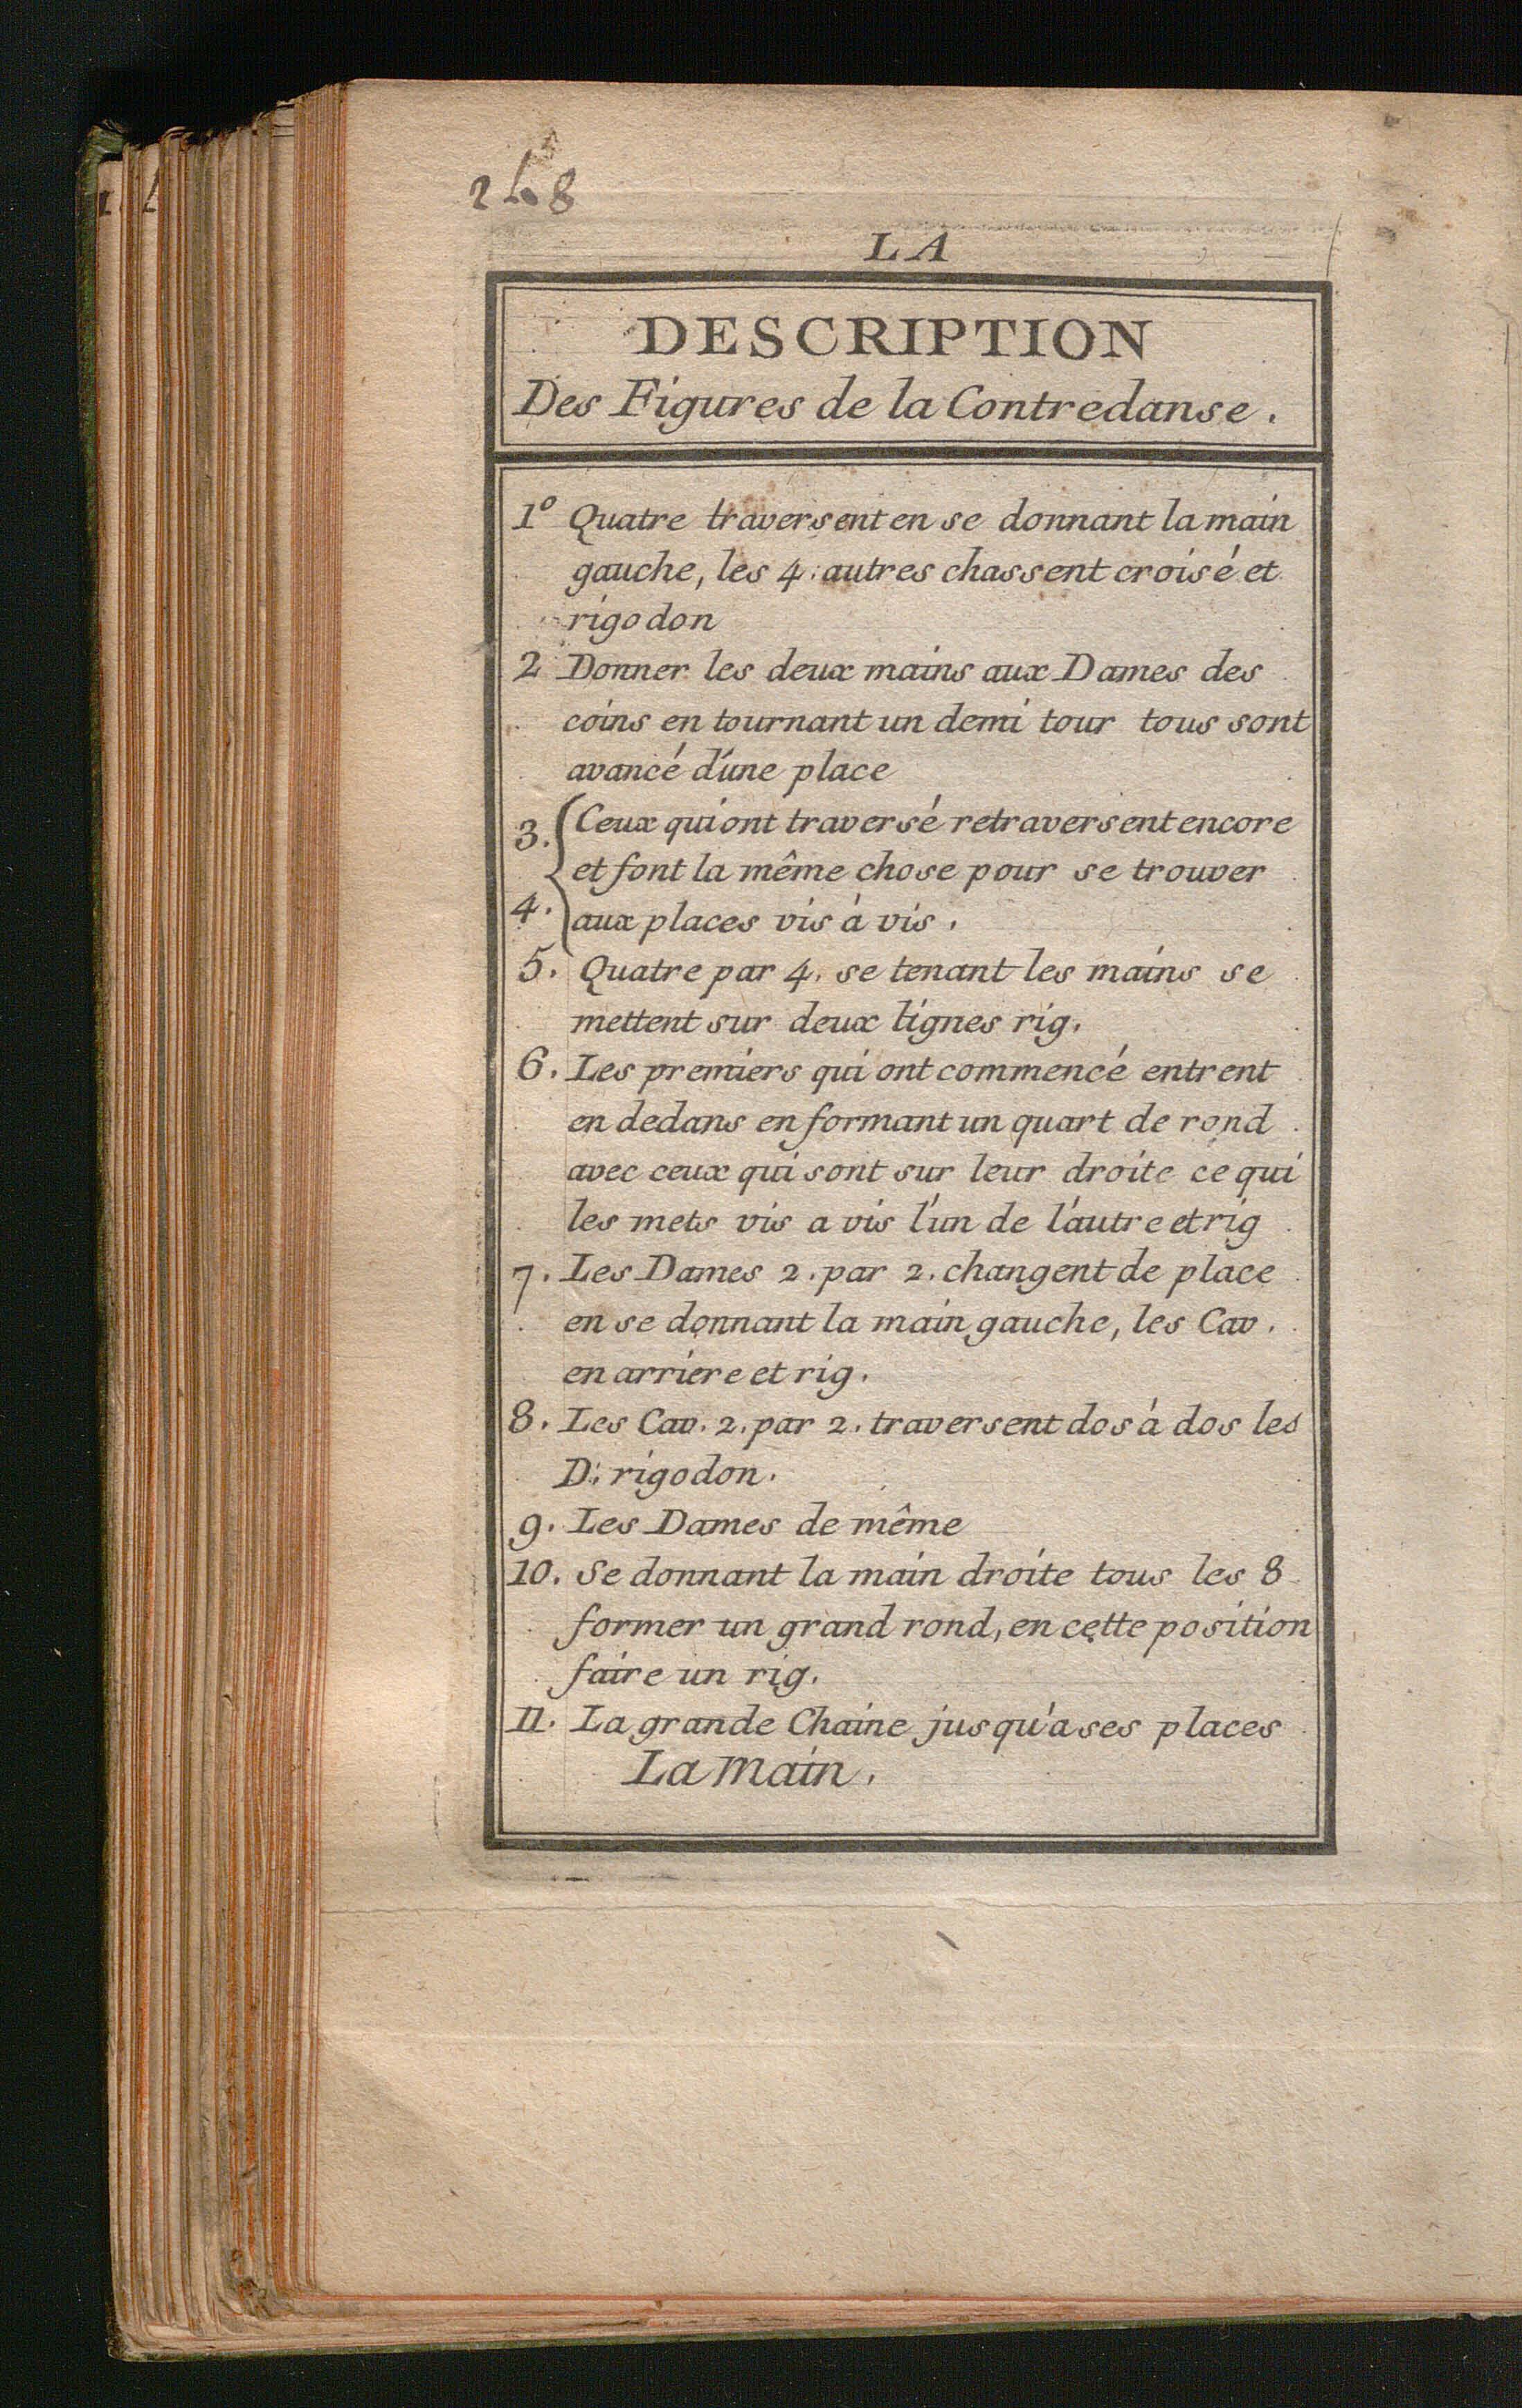 LA
DESCRIPTION
Des Figures de la Contredanse.
1º Quatre traversent en se donnant la main
gauche, les 4. autres chassent croisé et
rigodon
2 Donner les deux mains aux Dames des
coins en tournant un demi tour tous sont
avancé d'une place
3. Ceux qui ont traversé retraversent encore
et font la même chose pour se trouver
4. aux places vis à vis.
5. Quatre par 4. se tenant les mains se
mettent sur deux lignes rig.
6. Les premiers qui ont commencé entrent
en dedans en formant un quart de rond
avec ceux qui sont sur leur droite ce qui
les mets vis a vis l'un de l'autre et rig
7. Les Dames 2. par 2. changent de place
en se donnant la main gauche, les Cav.
en arriere et rig.
8. Les Cav. 2. par 2. traversent dos à dos les
D: rigodon.
9. Les Dames de même
10. Se donnant la main droite tous les 8
former un grand rond, en cette position
faire un rig.
11. La grande Chaine jusqu'a ses places
La Main.